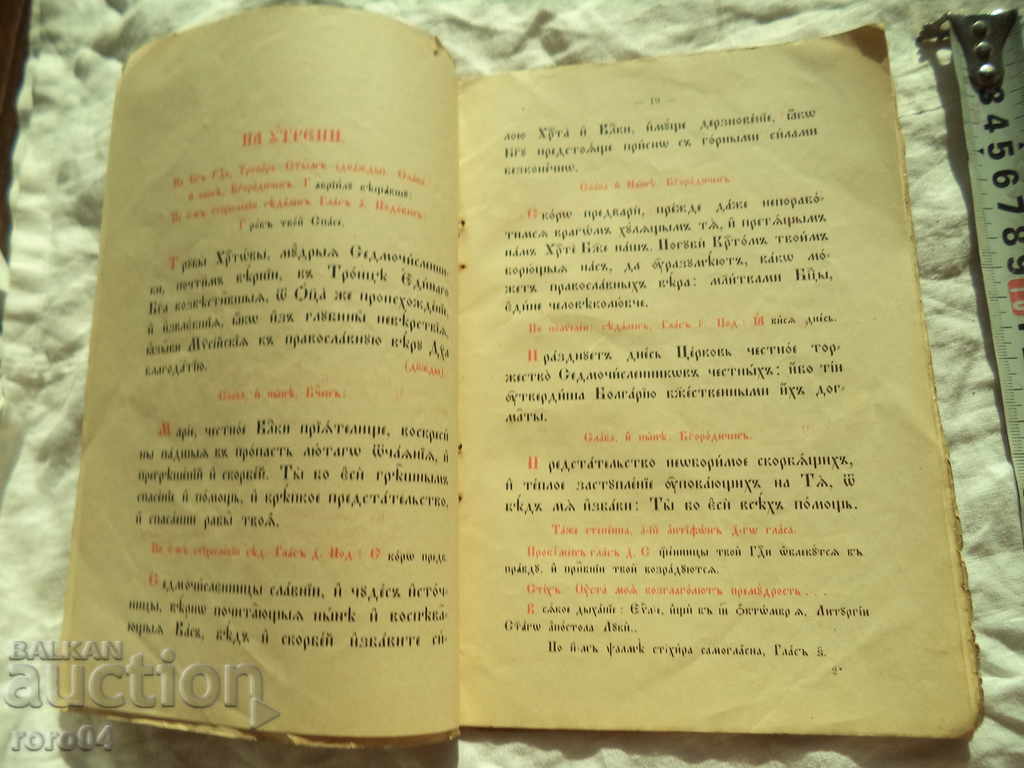 НА ОУ҆́ТРЕНИ.
На Бг҃ъ Гдⷭ҇ь, Тропарь Ст҃ымъ (дважды). Сла́ва:
и҆ ны́нѣ, Бг҃оро́диченъ. Гаврїи́лу вѣща́вшу:
По а҃-мъ стїхосло́вїи сѣда́ленъ, Гла́съ а҃. Подо́бенъ:
Гро́бъ тво́й Спа́се.
Трꙋбы̀ Хрⷭ҇то́вы, мꙋ́дрыѧ Седмочи́сленни-
ки, почти́мъ вѣ́рнїи, въ Тро́ицѣ Е҆ди́наго
Бг҃а возвѣсти́вшыѧ, ѿ Ѻ҆ц҃а̀ же происхожде́нїй,
ꙗ҆́кѡ и҆зъ глꙋбины̀ невѣ́рствїѧ,
ꙗ҆зы́ки Мѷсі́йскїѧ къ правосла́внꙋю вѣ́рꙋ Дх҃а
благода́тїю. (два́жды).
Сла́ва, и҆ ны́нѣ, Бг҃оро́диченъ:
Марі́е, честно́е Влⷣки прїѧ́телище, воскреси́
ны па́дшыѧ въ про́пасть лю́тагѡ ѿча́ѧнїѧ, и҆
прегрѣше́нїй и҆ скорбе́й. Ты́ бо є҆сѝ грѣ́шнымъ
спасе́нїе и҆ по́мощь, и҆ крѣ́пкое предста́тельство,
и҆ спаса́еши рабы̀ твоѧ̑.
По в҃-мъ стїхосло́вїи сѣд. Гла́съ д҃. Под: Ско́рѡ предв
Седмочи́сленницы сла́внїи, и҆ чꙋде́съ и҆сто́ч-
ницы, вѣ́рнѡ почита́ющыѧ ны́нѣ и҆ воспѣва́-
ющыѧ Ва́съ, бѣ́дъ и҆ скорбе́й и҆зба́вите си́-
— 19 —
лою Хрⷭ҇та̀ и҆ Влⷣки, и҆мꙋ́ще дерзнове́нїе, ꙗ҆́кѡ
Бг҃ꙋ предстоѧ́ще при́снѡ съ го́рными си́лами
безконе́чнѡ.
Сла́ва и҆ ны́нѣ, Бг҃оро́диченъ.
Ско́рѡ предварѝ, пре́жде да́же непорабо́-
тимсѧ врагѡ́мъ хꙋ́лѧщымъ тѧ̀, и҆ претѧ́щымъ
на́мъ Хрⷭ҇тѐ Бж҃е на́шъ. Погꙋбѝ Крⷭ҇то́мъ твои́мъ
борю́щыѧ на́съ, да оу҆разꙋмѣ́ютъ, ка́кѡ мо́-
жетъ правосла́вныхъ вѣ́ра: мл҃твами Бц҃ы,
є҆ди́не человѣколю́бче.
По полѷеле́и: сѣда́ленъ, Гла́съ г҃. Под: Ꙗ҆ви́сѧ дне́сь.
Пра́зднꙋетъ дне́сь Це́рковь честно́е тор-
жество̀ Седмочи́сленникѡвъ че́стныхъ: и҆́бо ті́и
оу҆тверди́ша Болга́рїю бж҃е́ственными и҆́хъ до́г-
маты.
Сла́ва, и҆ ны́нѣ, Бг҃оро́диченъ.
Предста́тельство неѡбори́мое скорбѧ́щихъ,
и҆ те́плое застꙋпле́нїе оу҆пова́ющихъ на Тѧ̀, ѿ
бѣ́дъ мѧ̀ и҆зба́ви: Ты́ бо є҆сѝ всѣ́хъ по́мощь.
Та́же степє́нна, а҃-й а҆нтїфѡ́нъ д҃-гѡ гла́са.
Проки́менъ гла́съ д҃. Сщ҃е́нницы твоѝ Гдⷭ҇и ѡ҆блекꙋ́тсѧ въ
пра́вдꙋ, и҆ прпⷣбнїи твоѝ возра́дꙋютсѧ.
Сті́хъ. Оу҆ста̀ моѧ̑ возглаго́лютъ премꙋ́дрость . . .
Всѧ́кое дыха́нїе: Є҆ѵⷢ҇лїе, и҆щѝ въ и҃і ѻ҆ктѡ́мврїа, Литꙋргі́и
ст҃а́гѡ а҆по́стола Лꙋкѝ.
По н҃-мъ ѱалмѣ̀ стїхи́ра самогла́сна, Гла́съ ѕ҃.
2*
BALKAN
auction
roro04
3 4 5 6 7 8 9 10